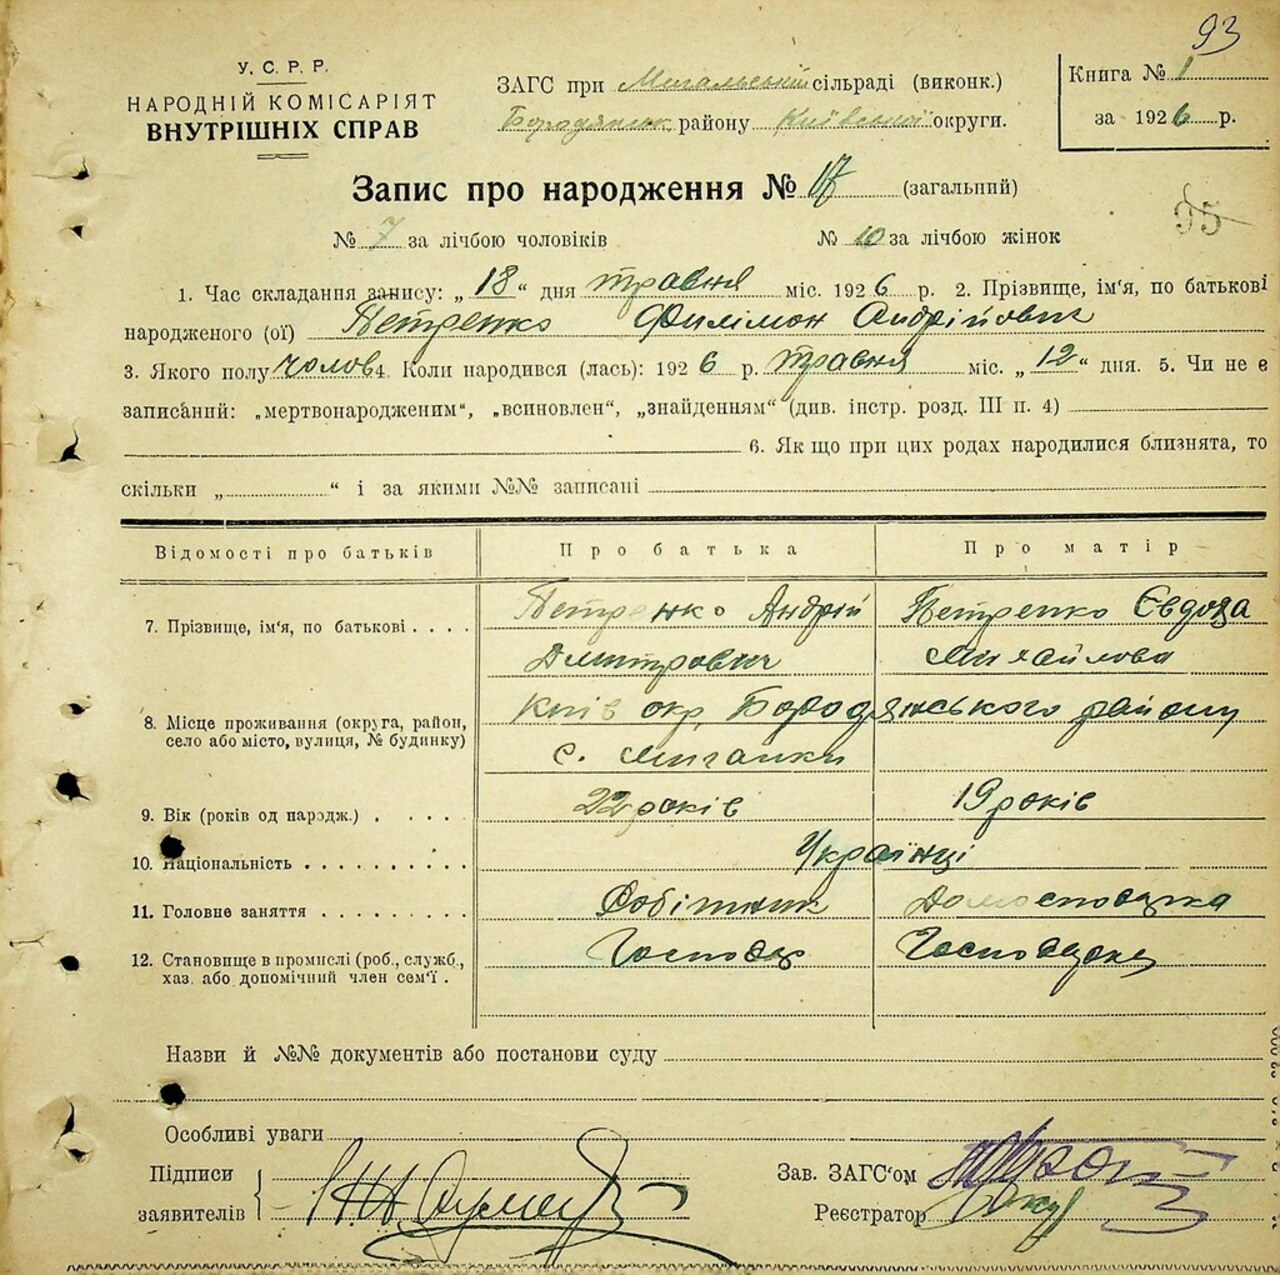 93
У. С. Р. Р.
НАРОДНІЙ КОМІСАРІЯТ
ВНУТРІШНІХ СПРАВ
ЗАГС при Мигальській сільраді (виконк.)
Бородянськ району Київської округи.
Книга № 1
за 1926 р.
Запис про народження № 17 (загальний)
95
№ 7 за лічбою чоловіків № 10 за лічбою жінок
1. Час складання запису: „18“ дня травня міс. 1926 р. 2. Прізвище, ім'я, по батькові
народженого (ої) Петренко Филімон Андрійович
3. Якого полу чолов 4. Коли народився (лась): 1926 р. травня міс. „12“ дня. 5. Чи не є
записаний: „мертвонародженим“, „всиновлен“, „знайденням“ (див. інстр. розд. III п. 4)
6. Як що при цих родах народилися близнята, то
скільки „ “ і за якими №№ записані
Відомості про батьків Про батька Про матір
7. Прізвище, ім'я, по батькові Петренко Андрій Петренко Євдоха
Дмитрович Михайлова
8. Місце проживання (округа, район, Київ окр, Бородянського району
село або місто, вулиця, № будинку) с. Мигалки
9. Вік (років од народж.) 22 років 19 років
10. Національність Українці
11. Головне заняття Робітник Домосподарка
12. Становище в промислі (роб., служб., Господар Господарка
хаз. або допомічний член сем'ї .
Назви й №№ документів або постанови суду
Особливі уваги
Підписи
заявителів
Зав. ЗАГС'ом
Реєстратор